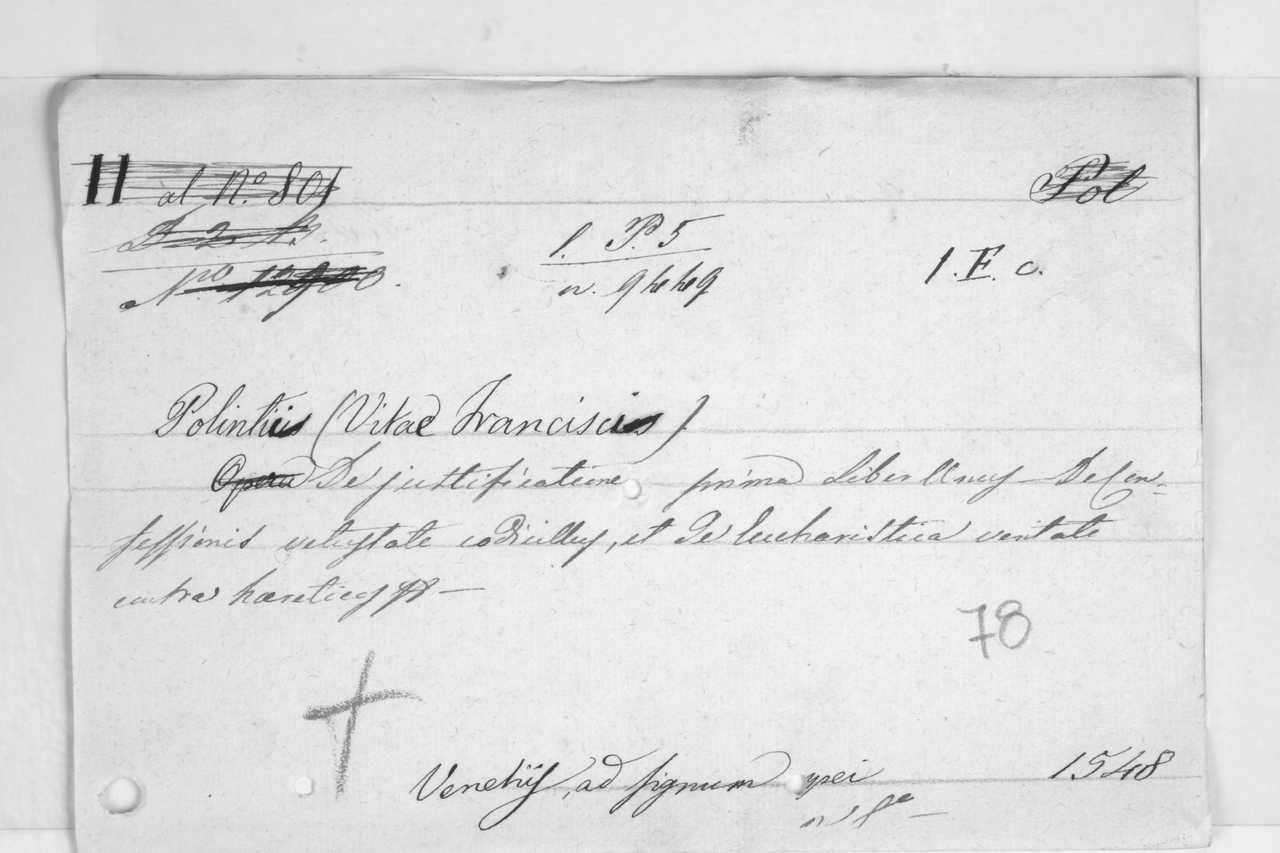 II al N.º 801 Pol
D 2 B.
1. P. 5
1. E. c.
Nro 12900.
n. 94449
Polintius (Vitae Franciscus)
Opera De justificatione prima Liberllus — De Con-
fessionis vetustate codicillus, et de Eucharistica veritate
contra hæreticos —
78
Venetiis, ad signum spei 1548
in 8º —